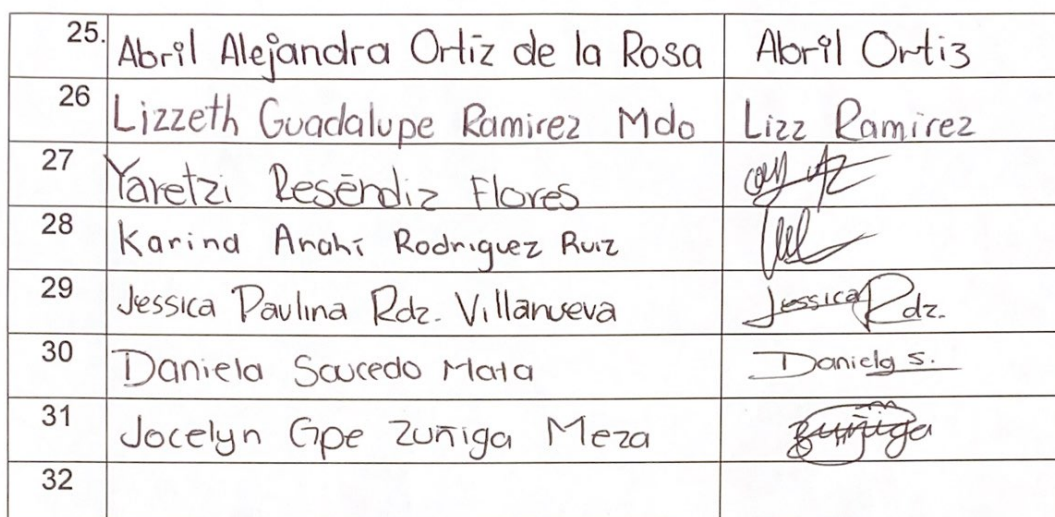 25. Abril Alejandra Ortiz de la Rosa Abril Ortiz
26 Lizzeth Guadalupe Ramirez Mdo Lizz Ramirez
27 Yaretzi Reséndiz Flores
28 Karina Anahí Rodriguez Ruiz
29 Jessica Paulina Rdz. Villanueva Jessica Rdz.
30 Daniela Saucedo Mata Daniela S.
31 Jocelyn Gpe Zuñiga Meza Zuñiga
32